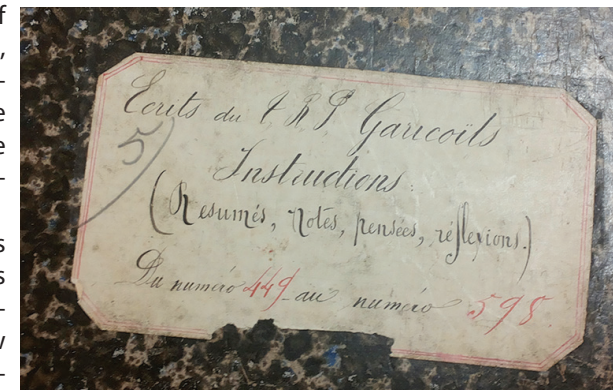 Ecrits du t R P Garicoïts
5)
Instructions.
(Resumés, Notes, pensées, réflexions.)
Du numéro 449 au numéro 595